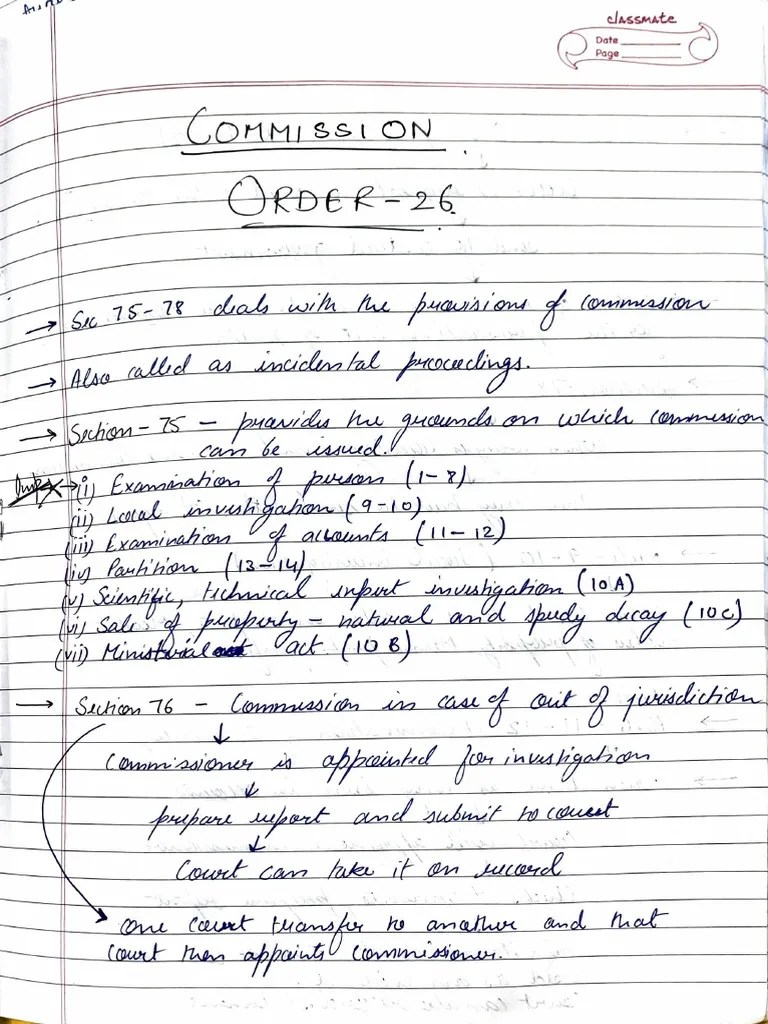 classmate
Date
Page
COMMISSION
ORDER-26.
→ Sec 75-78 deals with the provisions of commission
→ Also called as incidental proceedings.
→ Section-75 - provides the grounds on which commission
can be issued.
Imp → (i) Examination of person (1-8)
(ii) Local investigation (9-10)
(iii) Examination of accounts (11-12)
(iv) Partition (13-14)
(v) Scientific, technical expert investigation (10A)
(vi) Sale of property - natural and speedy decay (10C)
(vii) Ministerial act (10B)
→ Section 76 - Commission in case of out of jurisdiction
↓
Commissioner is appointed for investigation
↓
prepare report and submit to court
↓
Court can take it on record
one court transfer to another and that
court then appoints commissioner.